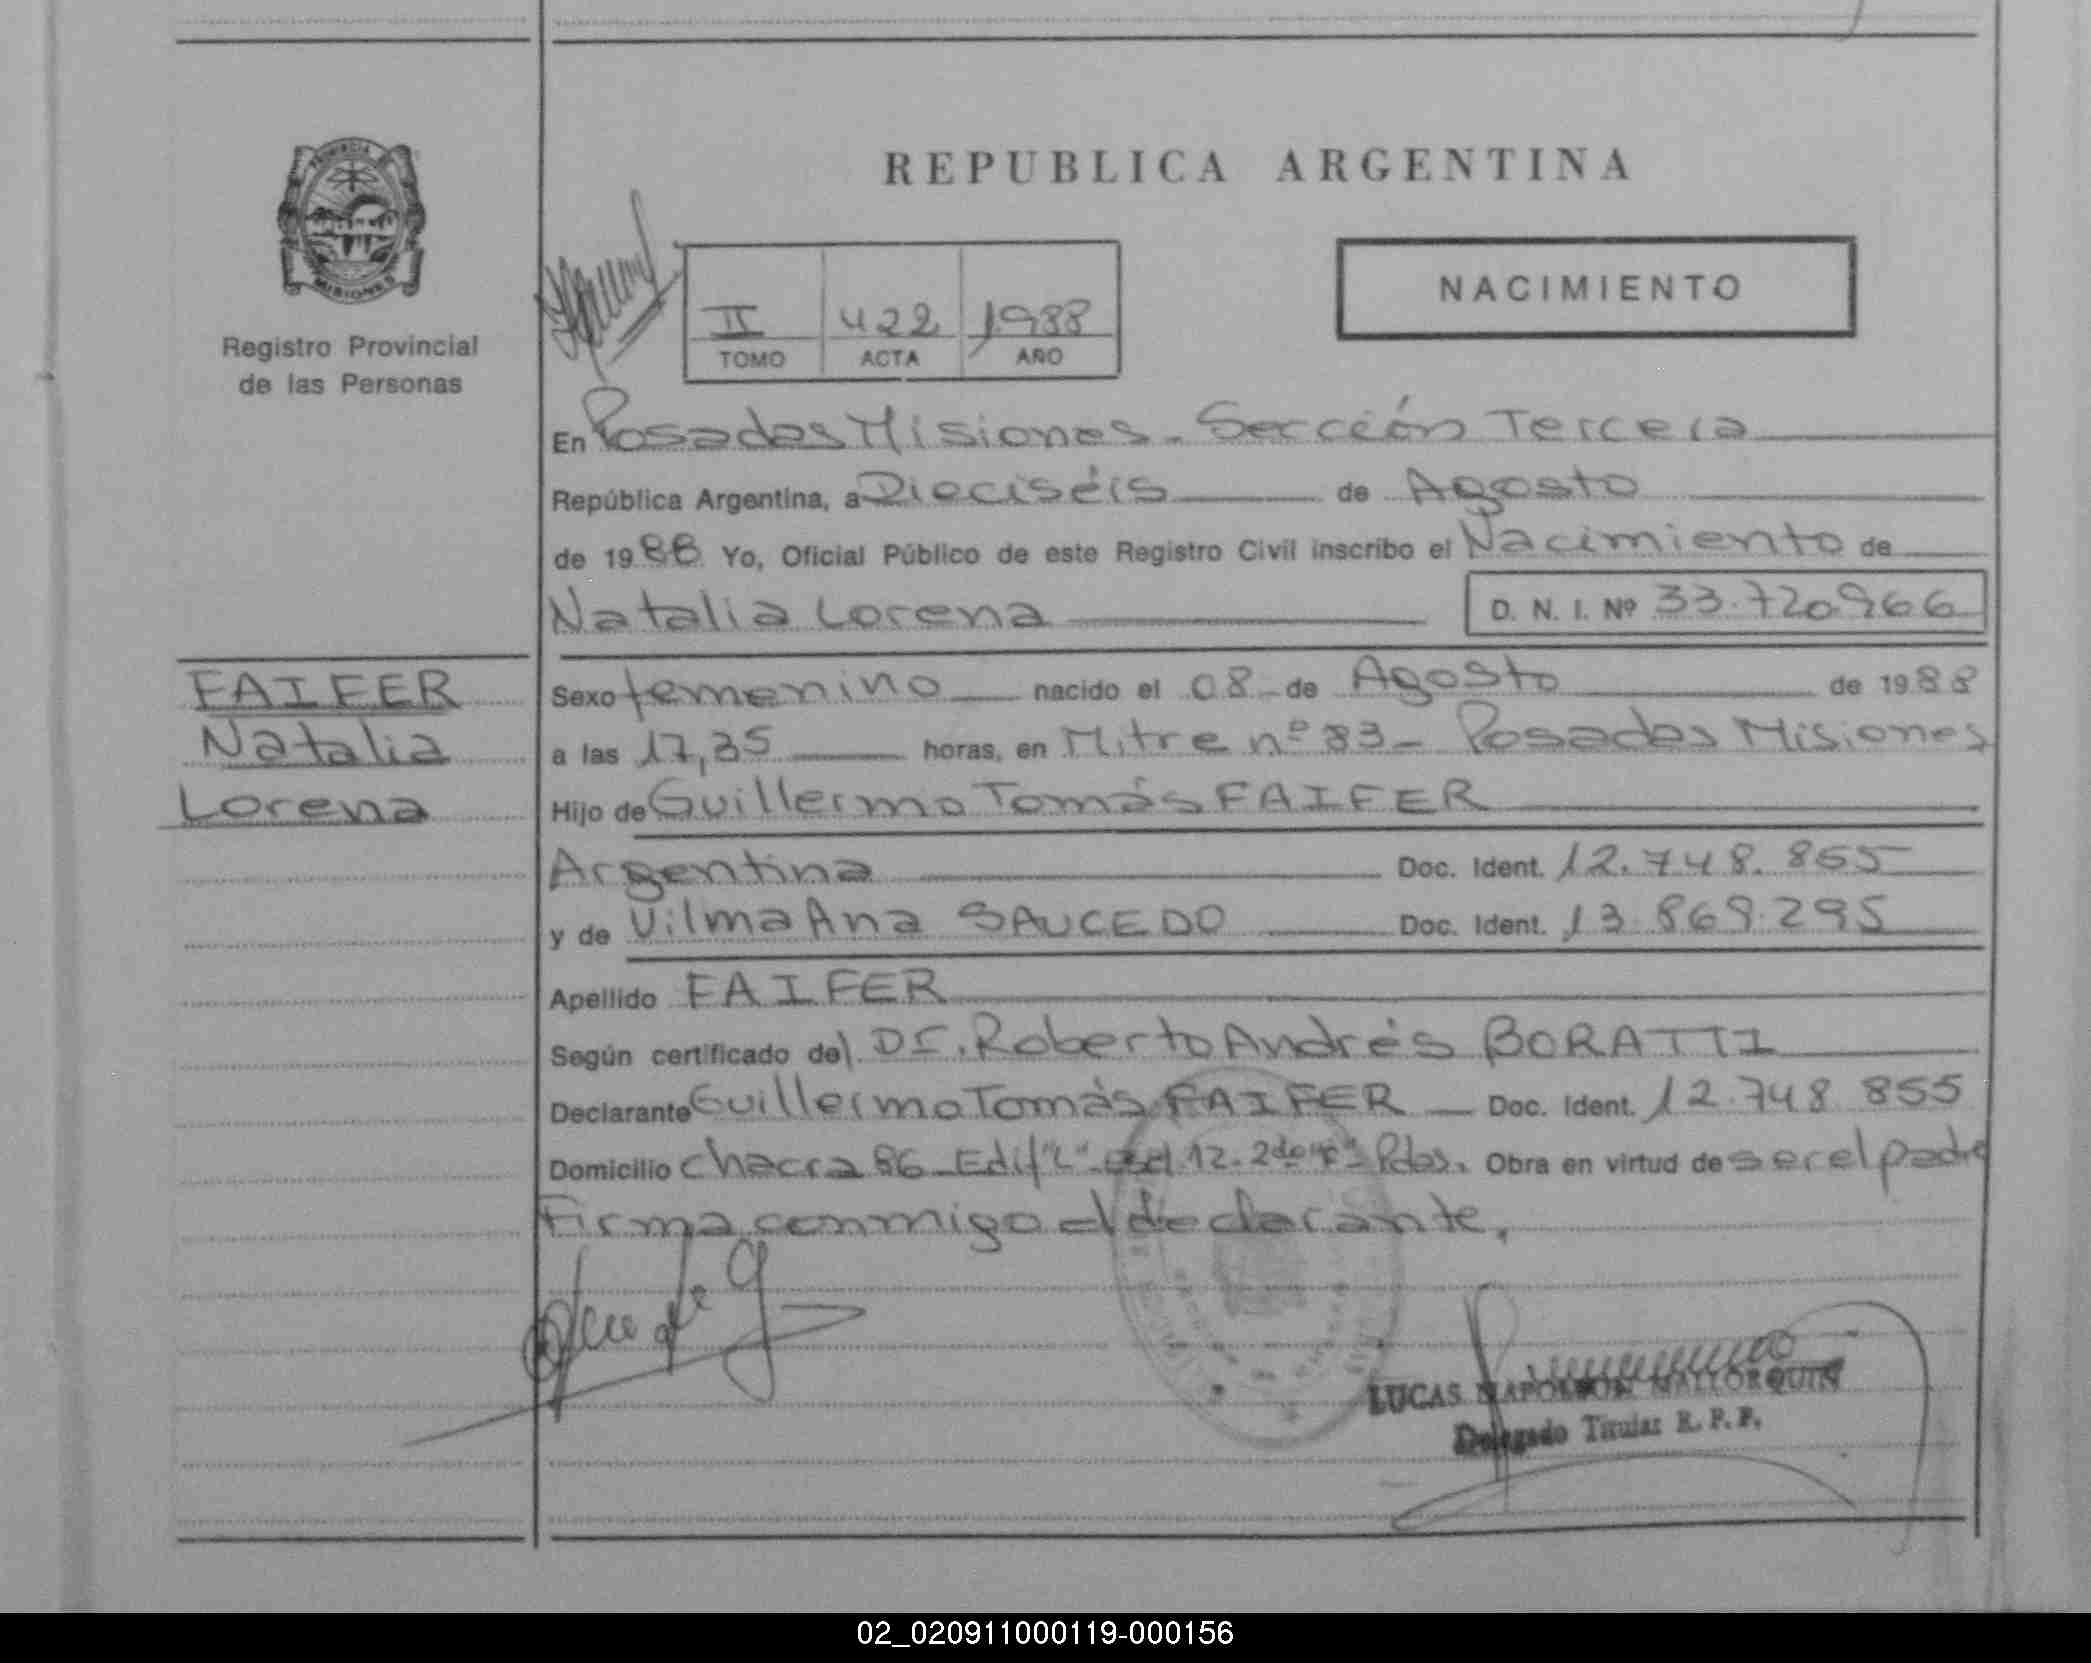 REPUBLICA ARGENTINA
PROVINCIA
MISIONES
Registro Provincial
de las Personas
NACIMIENTO
II 422 1988
TOMO ACTA AÑO
En Posadas Misiones. Sección Tercera
República Argentina, a Dieciséis de Agosto
de 1988 Yo, Oficial Público de este Registro Civil inscribo el Nacimiento de
Natalia Lorena D. N. I. Nº 33.720966
FAIFER
Natalia
Lorena
Sexo femenino nacido el 08 de Agosto de 1988
a las 17,35 horas, en Mitre nº 83 - Posadas Misiones
Hijo de Guillermo Tomás FAIFER
Argentina Doc. Ident. 12.748.855
y de Vilma Ana SAUCEDO Doc. Ident. 13.869.295
Apellido FAIFER
Según certificado del Dr. Roberto Andrés BORATTI
Declarante Guillermo Tomás FAIFER Doc. Ident. 12.748 855
Domicilio chacra 86 Edif "L" 12. 2do Pdas. Obra en virtud de ser el padre
Firma conmigo el declarante.
LUCAS NAPOLEON MALLORQUIN
Delegado Titular R. P. P.
02_020911000119-000156